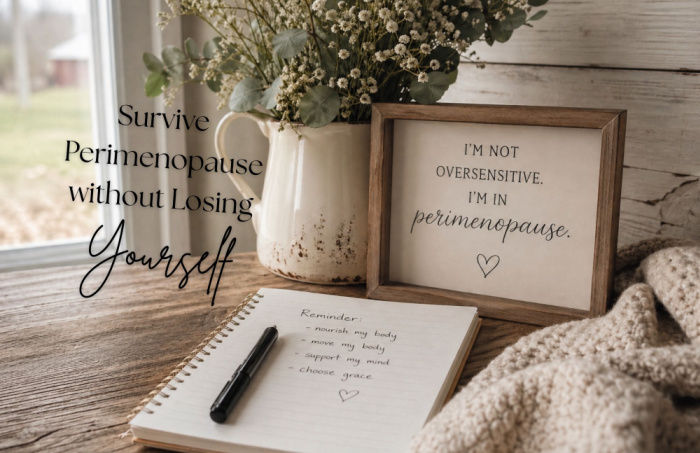 Survive
Perimenopause
without Losing
Yourself
I'M NOT
OVERSENSITIVE.
I'M IN
perimenopause.
Reminder:
- nourish my body
- move my body
- support my mind
- choose grace